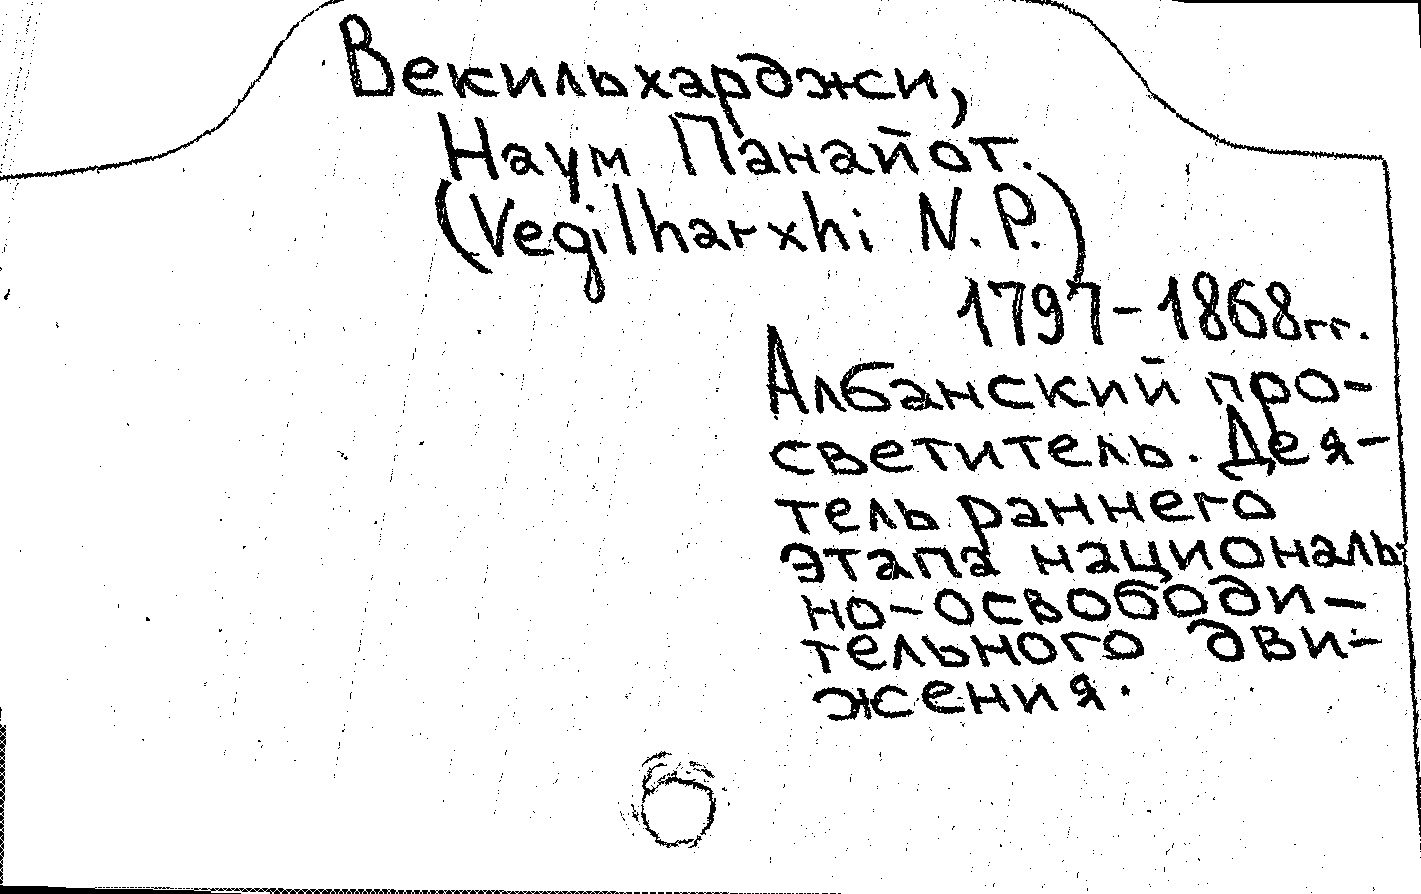 Векильхарджи,
Наум Панайот.
(Veqilharxhi N.P.)
1797-1868гг.
Албанский про-
светитель. Дея-
тель раннего
этапа националь-
но-освободи-
тельного дви-
жения.